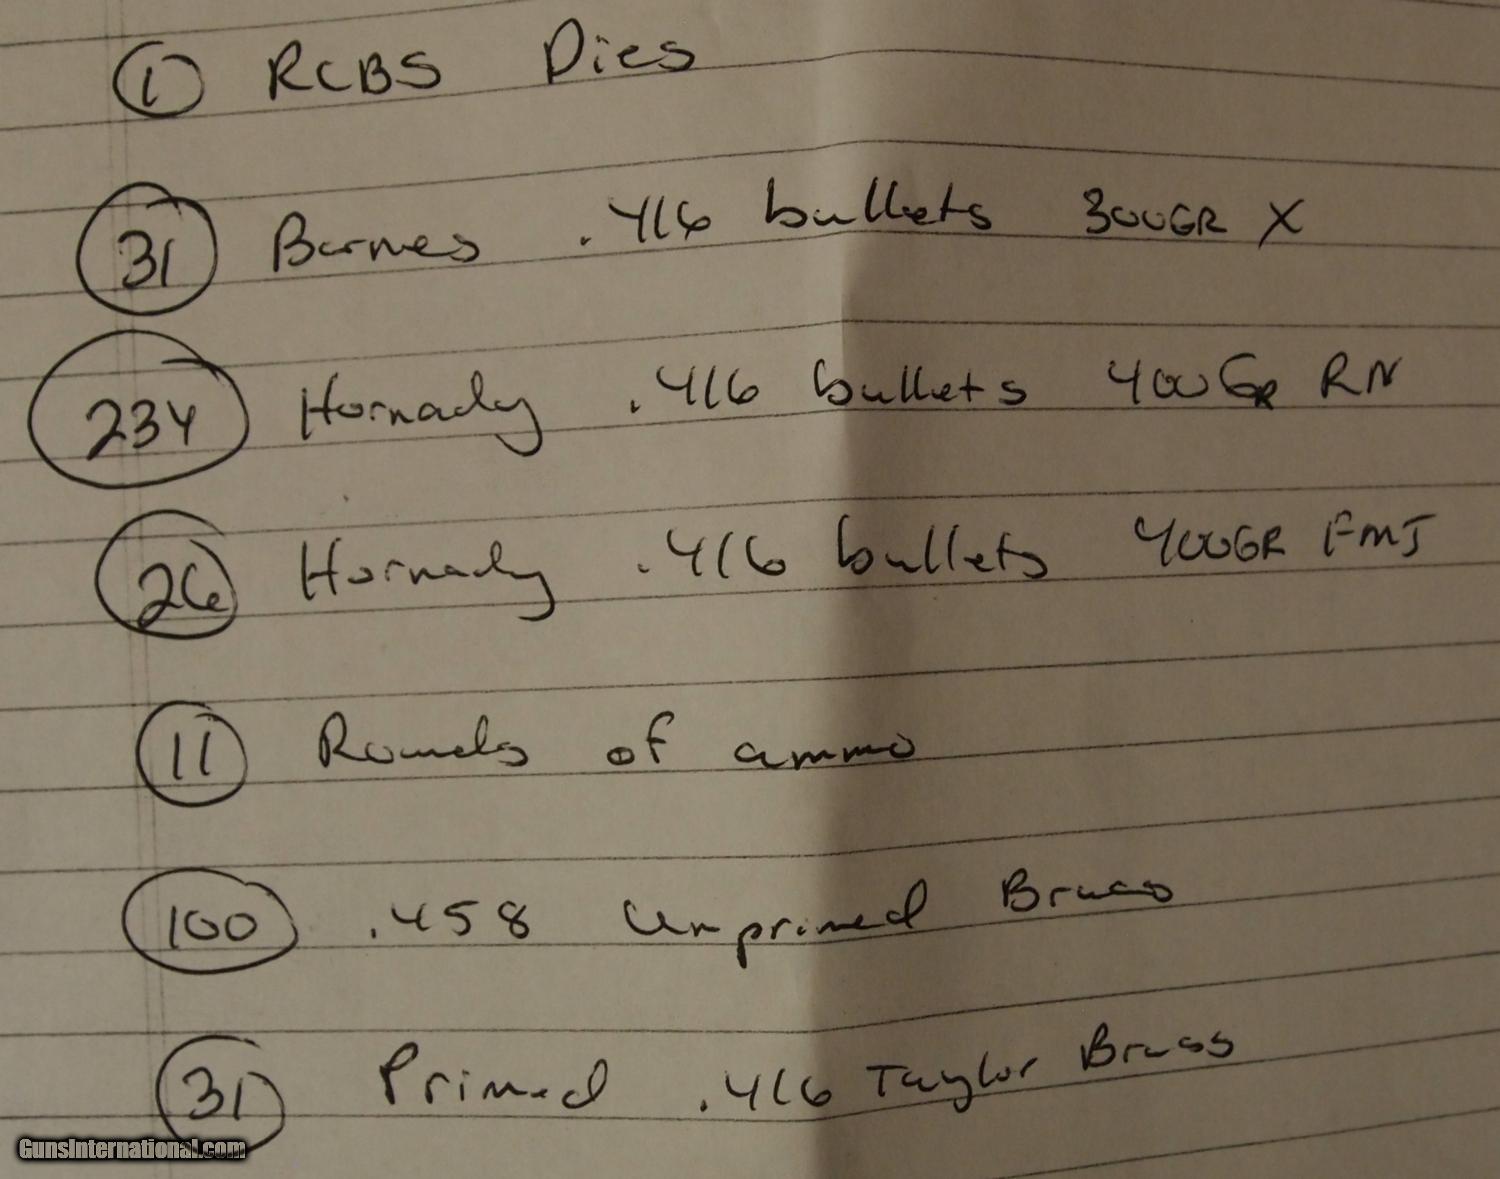 1 RCBS Dies
31 Barnes .416 bullets 300GR X
234 Hornady .416 bullets 400GR RN
26 Hornady .416 bullets 400GR FMJ
11 Rounds of ammo
100 .458 Unprimed Brass
31 Primed .416 Taylor Brass
GunsInternational.com